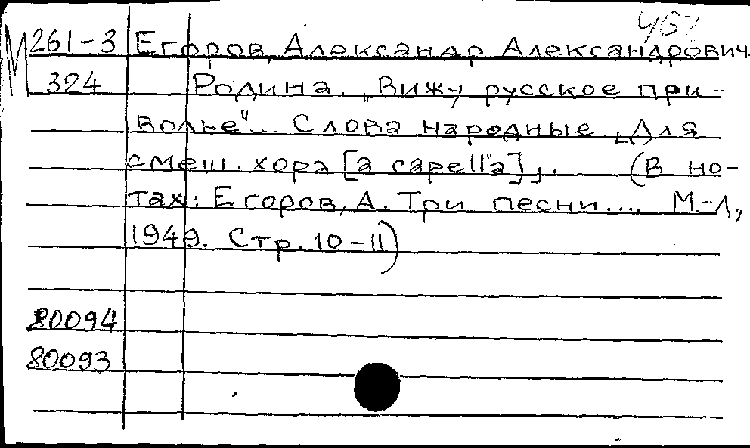 457
М 261-3 Егоров, Александр Александрович
324 Родина. „Вижу русское при-
волье"... Слова народные. [Для
смеш. хора [a capella]]. (В но-
тах: Егоров, А. Три песни.... М.-Л.,
1949. Стр. 10-11)
80094
80093